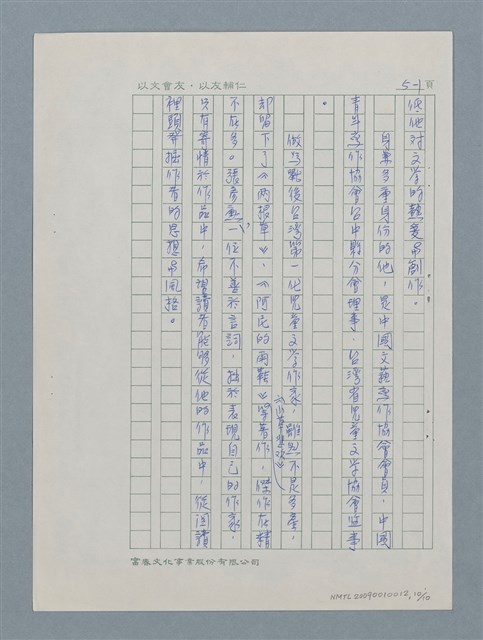 以文會友·以友輔仁
5-1頁
低他对文学的熱爱与創作。
身兼多重身份的他，是中國文藝作協會會員、中國
青年寫作協會台中縣分會理事、台灣省兒童文学協會監事
。
做為戰後台灣第一代兒童文学作家，雖然不是多產，
却留下了《兩根草》、《阿民的雨鞋》《小草悲欢》等著作，傑作在精
不在多。張彥勳，一位不善於言詞，拙於表現自己的作家，
只有寄情於作品中，希望讀者能夠從他的作品中，從閱讀
裡頭發掘作者的思想与風格。
富春文化事業股份有限公司
NMTL20090010012, 10/10